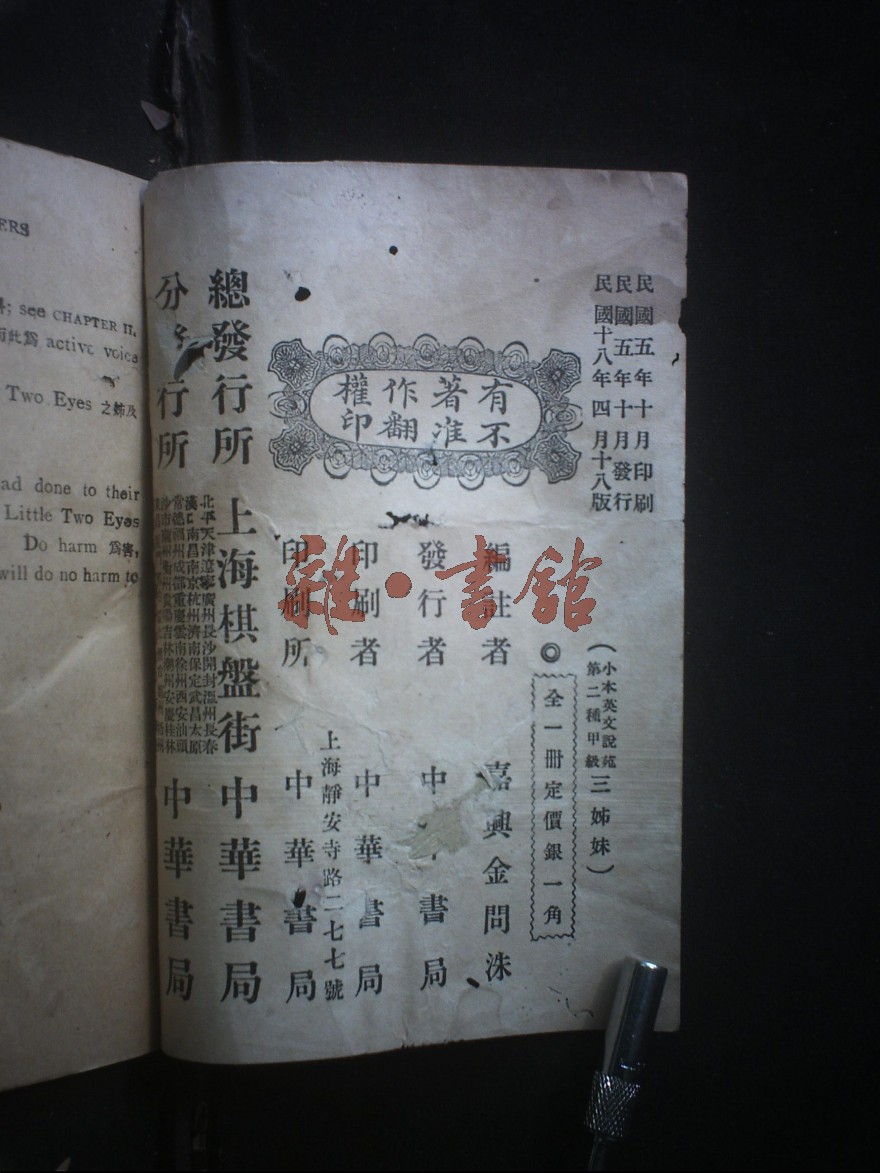 ERS
; see CHAPTER II.
而此爲 active voice
Two Eyes 之姊及
ad done to their
Little Two Eyes
Do harm 爲害,
will do no harm to
民國五年十月印刷
民國五年十月發行
民國十八年四月十八版
(小本英文說苑
第二種甲級
三姊妹)
◎
全一冊定價銀一角
有不
著准
作翻
權印
編註者 嘉興金問洙
發行者 中華書局
印刷者 中華書局
上海靜安寺路二七七號
印刷所 中華書局
總發行所 上海棋盤街 中華書局
分發行所
北平天津遼寧廣州長沙開封溫州長春
漢口南昌南京杭州濟南保定武昌太原
常德福州成都重慶雲南徐州西安汕頭
中華書局
雜·書館